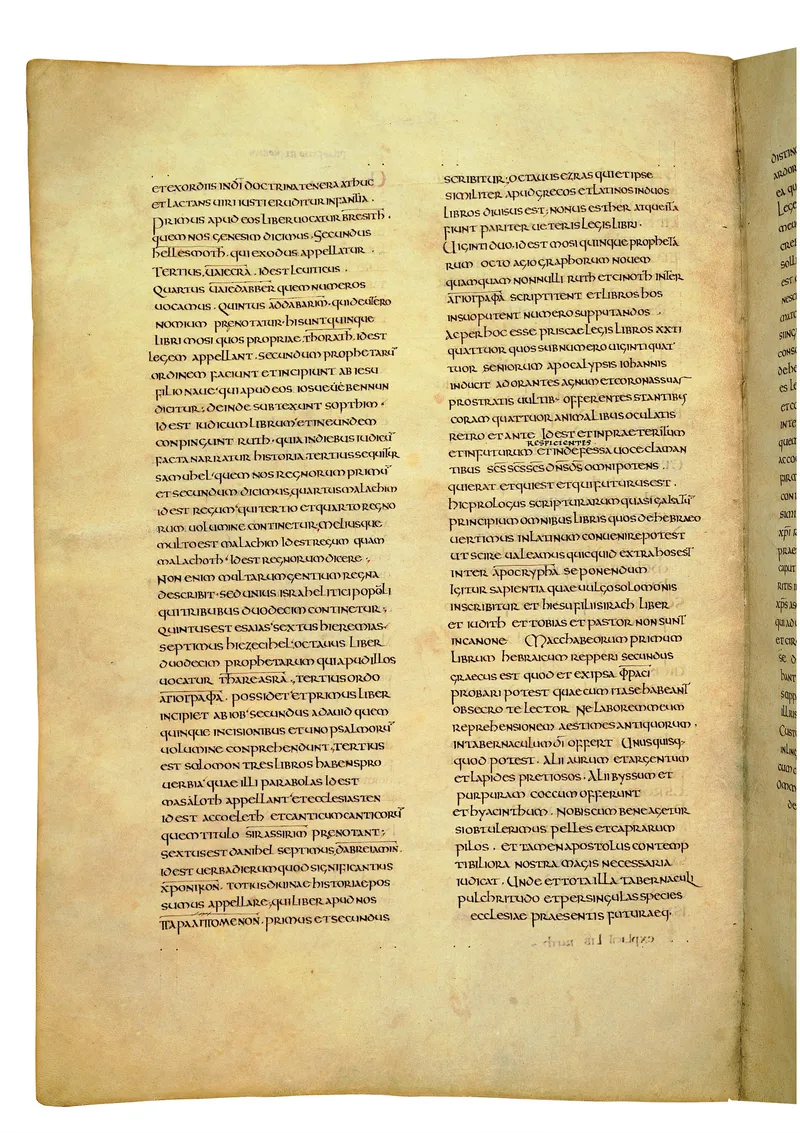 ET EXORDIIS IN DĪ DOCTRINA TENERA ATHUC
ET LACTANS UIRI IUSTI ERUDITUR INFANTIA .
PRIMUS APUD EOS LIBER UOCATUR BRESITH .
QUEM NOS GENESIM DICIMUS , SECUNDUS
HELLESMOTH . QUI EXODUS APPELLATUR
TERTIUS , UAIECRA . ID EST LEUITICUS .
QUARTUS UAIEDABBER QUEM NUMEROS
UOCAMUS . QUINTUS ADDABARIM . QUI DEUTERO
NOMIUM PRENOTATUR . HI SUNT QUINQUE
LIBRI MOSI QUOS PROPRIAE THORATH . ID EST
LEGEM APPELLANT . SECUNDUM PROPHETARŪ
ORDINEM FACIUNT ET INCIPIUNT AB IESU
FILIO NAUE ' QUI APUD EOS IOSUEUE BENNUN
DICITUR ; DEINDE SUBTEXUNT SOPTHIM .
ID EST IUDICUM LIBRUM ' ET IN EUNDEM
CONPINGUNT RUTH . QUIA IN DIEBUS IUDICŪ
FACTA NARRATUR HISTORIA . TERTIUS SEQUITUR
SAMUHEL ' QUEM NOS REGNORUM PRIMŪ
ET SECUNDUM DICIMUS , QUARTUS MALACHIM
ID EST REGUM ' QUI TERTIO ET QUARTO REGNO
RUM UOLUMINE CONTINETUR , MELIUSQUE
MULTO EST MALACHIM ID EST REGUM QUAM
MALACHOTH ' ID EST REGNORUM DICERE .
NON ENIM MULTARUM GENTIUM REGNA
DESCRIBIT . SED UNIUS ISRAHELITICI POPŌLI
QUI TRIBUBUS DUODECIM CONTINETUR ;
QUINTUS EST ESAIAS ' SEXTUS HIEREMIAS .
SEPTIMUS HIEZECIHEL ' OCTAUUS LIBER
DUODECIM PROPHETARUM QUI APUD ILLOS
UOCATUR THAREASRA . , TERTIUS ORDO
ΑΓΙΟΓΡΑΦΑ . POSSIDET ' ET PRIMUS LIBER
INCIPIET AB IOB ' SECUNDUS A DAUID QUEM
QUINQUE INCISIONIBUS ET UNO PSALMORŪ
UOLUMINE CONPREHENDUNT , TERTIUS
EST SALOMON TRES LIBROS HABENS PRO
UERBIA ' QUAE ILLI PARABOLAS ID EST
MASALOTH APPELLANT ' ET ECCLESIASTEN
ID EST ACCOELETH ET CANTICUM CANTICORŪ
QUEM TITULO SIRASSIRIM PRENOTANT ;
SEXTUS EST DANIHEL SEPTIMUS , DABREIAMIN .
ID EST UERBA DIERUM QUOD SIGNIFICANTIUS
ΧΡΟΝΙΚΟΝ . TOTIUS DIUINAE HISTORIAE POS
SUMUS APPELLARE , QUI LIBER APUD NOS
ΠΑΡΑΛΙΠΟΜΕΝΟΝ . PRIMUS ET SECUNDUS
SCRIBITUR ; OCTAUUS EZRAS QUI ET IPSE
SIMILITER APUD GRECOS ET LATINOS IN DUOS
LIBROS DIUISUS EST ; NONUS ESTHER ATQUE ITA
FIUNT PARITER UETERIS LEGIS LIBRI .
UIGINTI DUO , ID EST MOSI QUINQUE PROPHETA
RUM OCTO AGIOGRAPHORUM NOUEM
QUAMQUAM NONNULLI RUTH ET CINOTH INTER
ΑΓΙΟΓΡΑΦΑ SCRIPTITENT ET LIBROS HOS
IN SUO PUTENT NUMERO SUPPUTANDOS .
AC PER HOC ESSE PRISCAE LEGIS LIBROS XXTI
QUATTUOR QUOS SUB NUMERO UIGINTI QUAT
TUOR SENIORUM APOCALYPSIS IOHANNIS
INDUCIT ADORANTES AGNUM ET CORONAS SUAS
PROSTRATIS UULTIB · OFFERENTES STANTIBUS
CORAM QUATTUOR ANIMALIBUS OCULATIS
RETRO ET ANTE ID EST ET IN PRAETERITUM
RESPICIENTES .
ET IN FUTURUM ET INDEFESSA UOCE CLAMAN
TIBUS SC̄S SC̄S SC̄S DN̄S DS̄ OMNIPOTENS .
QUI ERAT ET QUI EST ET QUI FUTURUS EST .
HIC PROLOGUS SCRIPTURARUM QUASI GALEATŪ
PRINCIPIUM OMNIBUS LIBRIS QUOS DE HEBRAEO
UERTIMUS IN LATINUM CONUENIRE POTEST
UT SCIRE UALEAMUS QUICQUID EXTRA HOS EST
INTER APOCRYPHA SEPONENDUM
IGITUR SAPIENTIA QUAE UULGO SOLOMONIS
INSCRIBITUR ET HIESU FILII SIRACH LIBER
ET IUDITH ET TOBIAS ET PASTOR NON SUNT
IN CANONE MACCHABEORUM PRIMUM
LIBRUM HEBRAICUM REPPERI SECUNDUS
GRAECUS EST QUOD ET EX IPSA ΦΡΑCΙ
PROBARI POTEST QUAE CUM ITA SE HABEANT
OBSECRO TE LECTOR NE LABOREM MEUM
REPREHENSIONEM AESTIMES ANTIQUORUM .
IN TABERNACULUM DĪ OFFERT UNUSQUISQ ·
QUOD POTEST . ALII AURUM ET ARGENTUM
ET LAPIDES PRETIOSOS . ALII BYSSUM ET
PURPURAM COCCUM OFFERUNT
ET HYACINTHUM . NOBISCUM BENE AGETUR
SI OBTULERIMUS PELLES ET CAPRARUM
PILOS . ET TAMEN APOSTOLUS CONTEMP
TIBILIORA NOSTRA MAGIS NECESSARIA
IUDICAT . UNDE ET TOTA ILLA TABERNACULI
PULCHRITUDO ET PER SINGULAS SPECIES
ECCLESIAE PRAESENTIS FUTURAEQ .